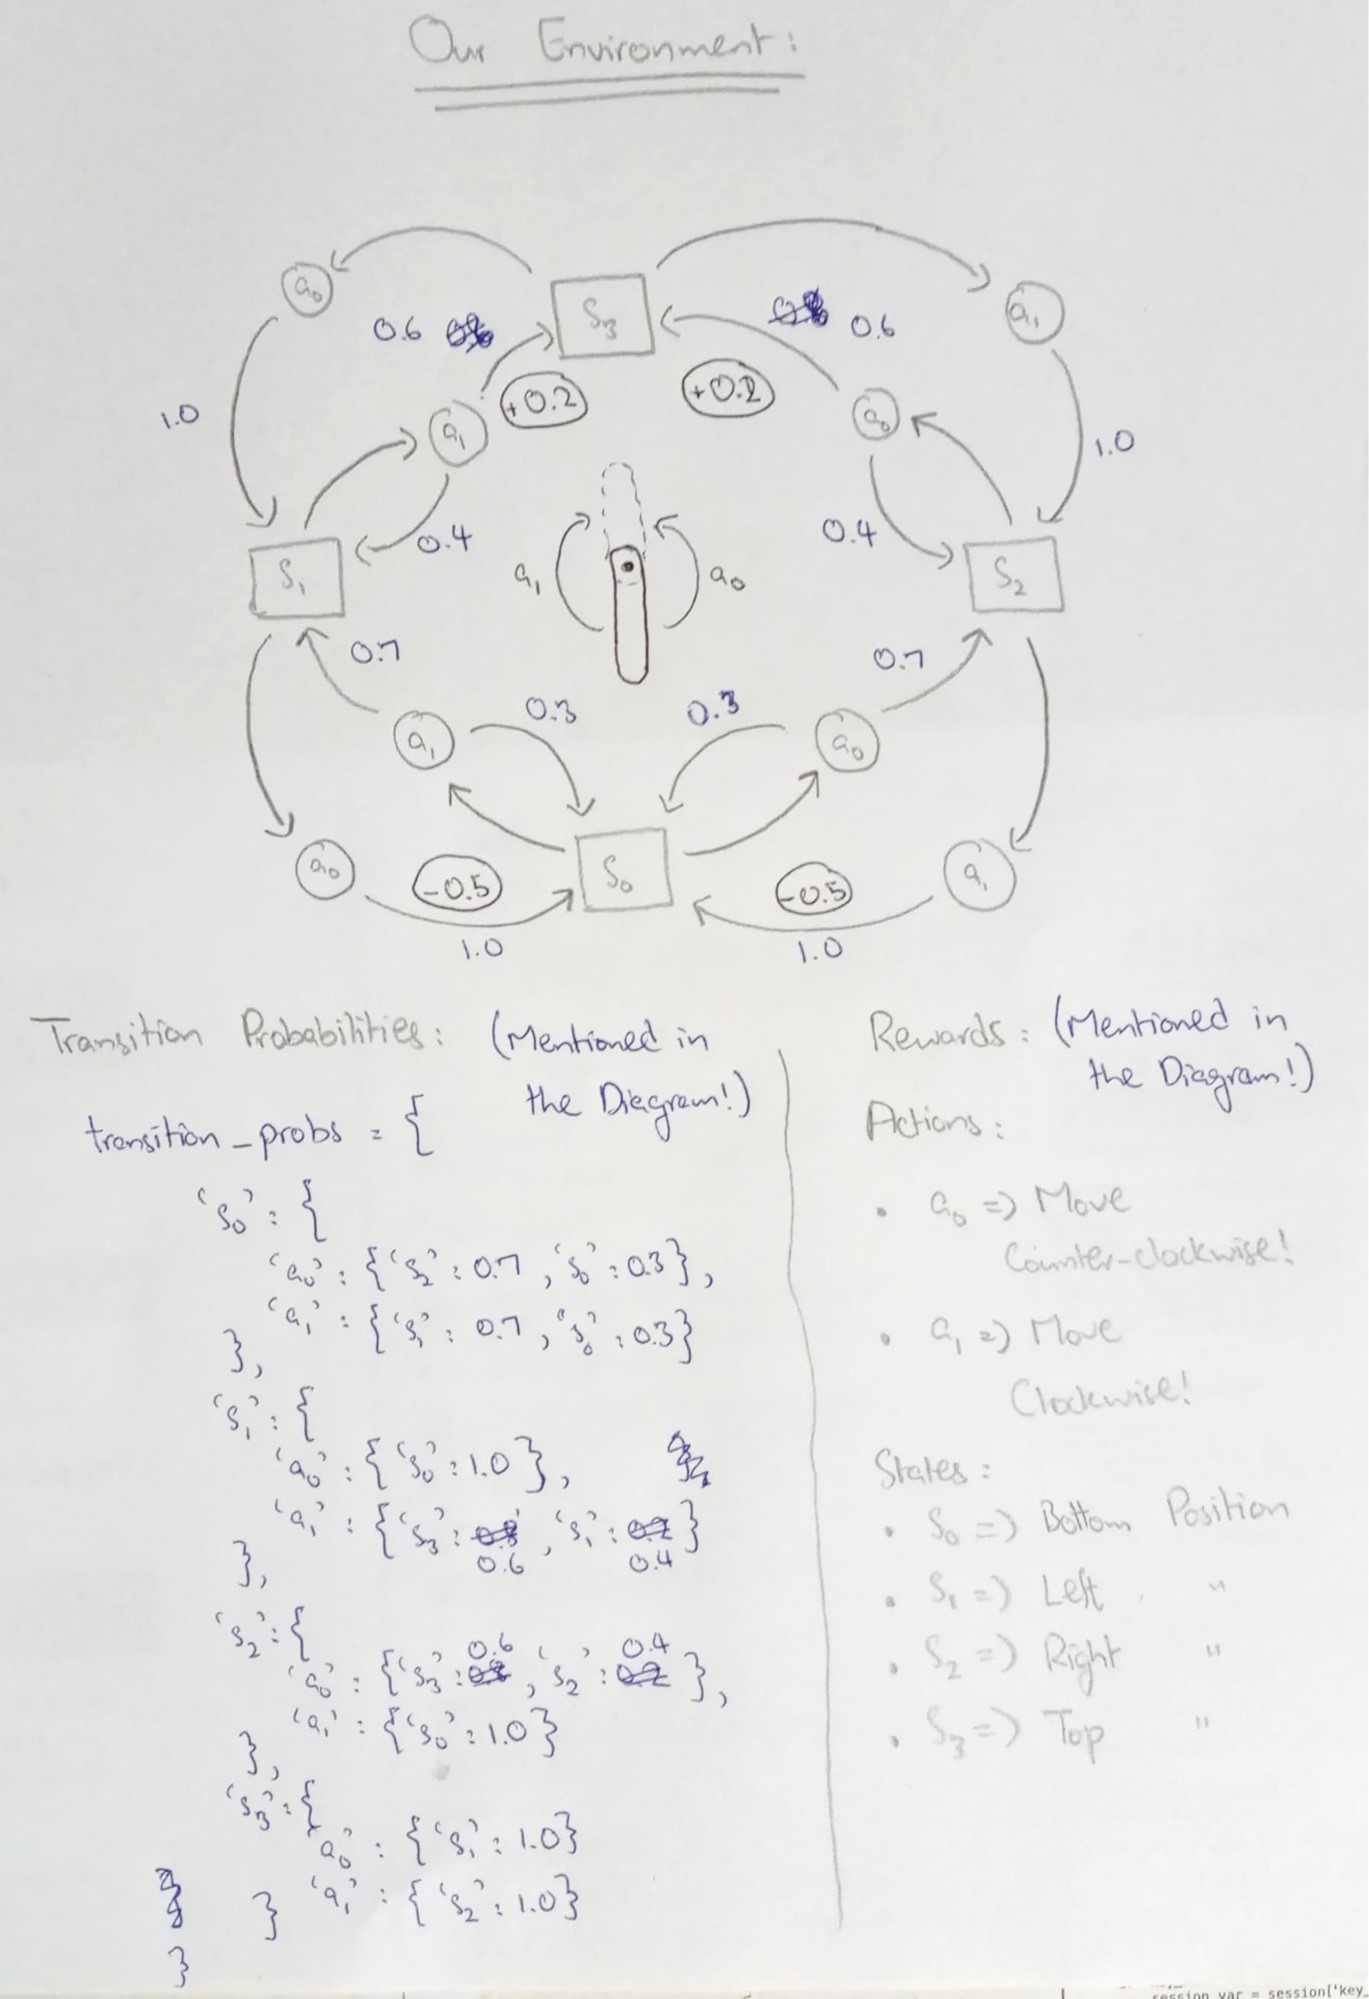 Our Environment:
a₀
S₃
a₁
0.6
0.6
+0.2
+0.2
1.0
a₁
a₀
1.0
0.4
0.4
S₁
a₁
a₀
S₂
0.7
0.7
0.3
0.3
a₁
a₀
a₀
-0.5
S₀
-0.5
a₁
1.0
1.0
Transition Probabilities: (Mentioned in
the Diagram!)
transition_probs = {
'S₀': {
'a₀': {'S₂': 0.7, 'S₀': 0.3},
'a₁': {'S₁': 0.7, 'S₀': 0.3}
},
'S₁': {
'a₀': {'S₀': 1.0},
'a₁': {'S₃: 0.6, 'S₁': 0.4}
},
'S₂': {
'a₀': {'S₃': 0.6, 'S₂': 0.4},
'a₁': {'S₀': 1.0}
},
'S₃': {
'a₀': {'S₁': 1.0}
} 'a₁': {'S₂': 1.0}
}
Rewards: (Mentioned in
the Diagram!)
Actions:
• a₀ => Move
Counter-clockwise!
• a₁ => Move
Clockwise!
States:
• S₀ => Bottom Position
• S₁ => Left "
• S₂ => Right "
• S₃ => Top "
session_var = session['key